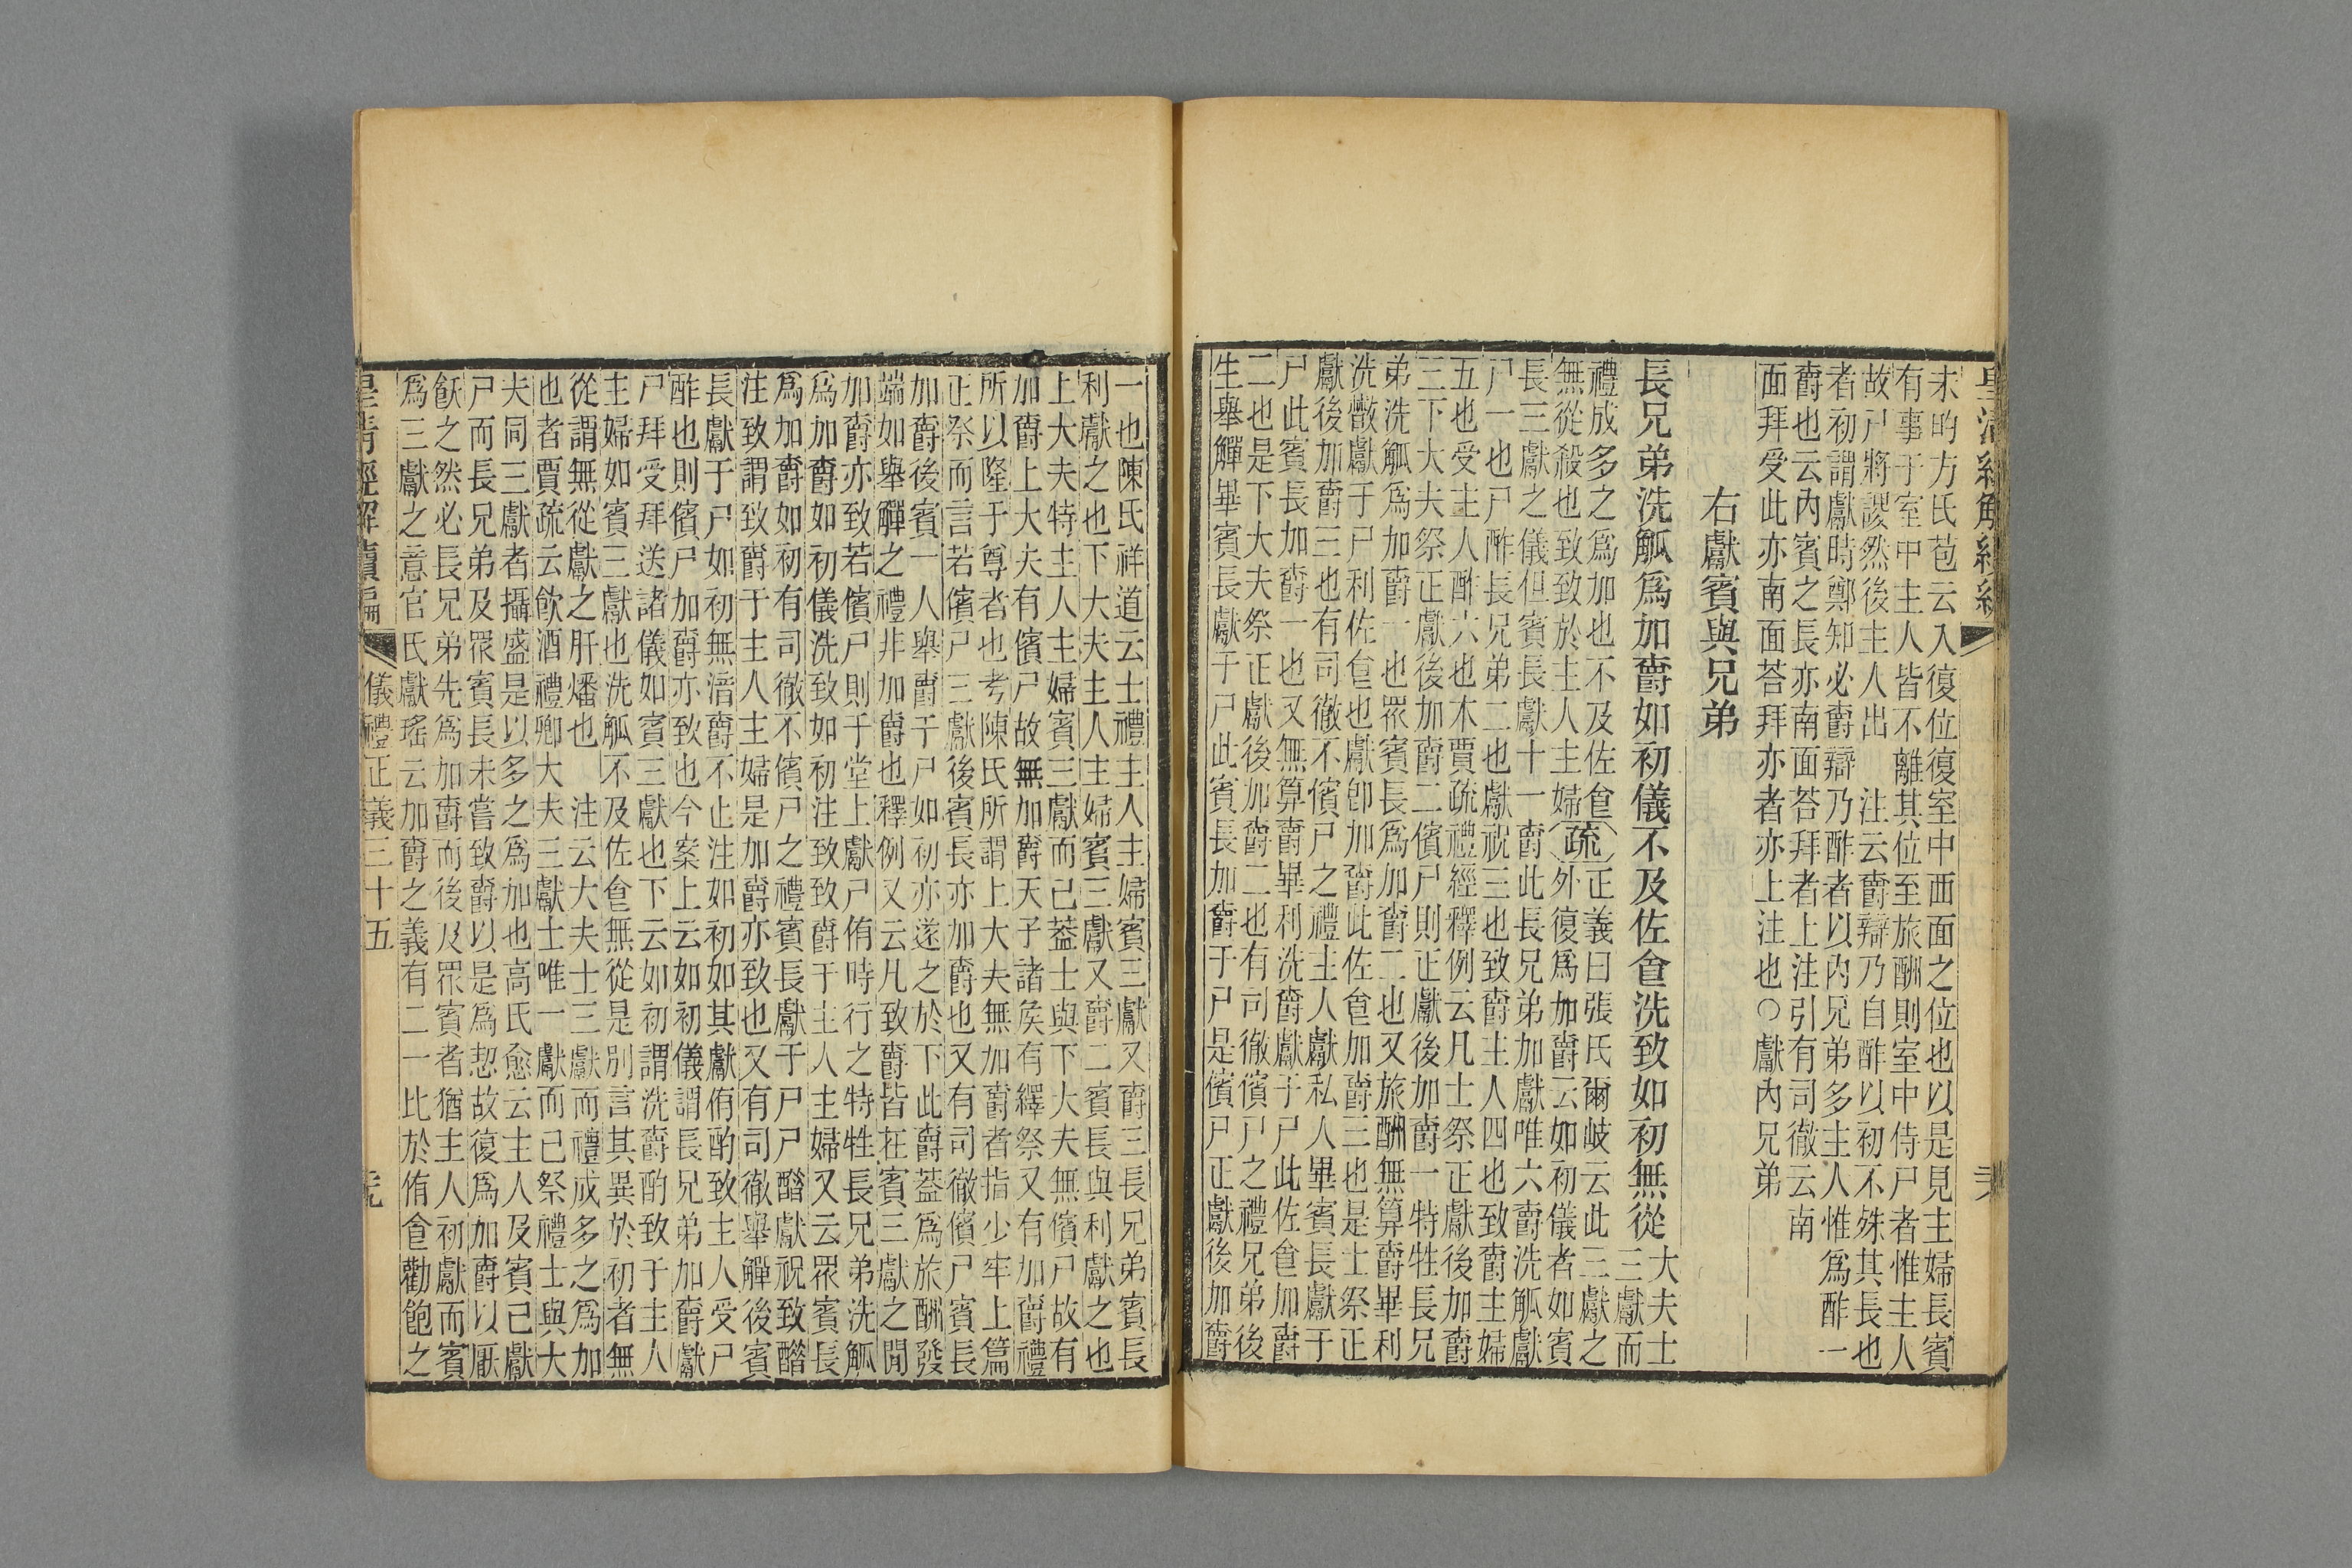 皇清經解續編
未的方氏苞云入復位復室中西面之位也以是見主婦長賓
有事于室中主人皆不離其位至旅酬則室中侍尸者惟主人
故尸將謖然後主人出　注云爵辯乃自酢以初不殊其長也
者初謂獻時鄭知必爵辯乃酢者以內兄弟多主人惟爲酢一
爵也云內賓之長亦南面荅拜者上注引有司徹云南
面拜受此亦南面荅拜亦者亦上注也○獻內兄弟
右獻賓與兄弟
長兄弟洗觚爲加爵如初儀不及佐食洗致如初無從大夫士
三獻而
禮成多之爲加也不及佐食疏正義曰張氏爾岐云此三獻之
無從殺也致致於主人主婦外復爲加爵云如初儀者如賓
長三獻之儀但賓長獻十一爵此長兄弟加獻唯六爵洗觚獻
尸一也尸酢長兄弟二也獻祝三也致爵主人四也致爵主婦
五也受主人酢六也木賈疏禮經釋例云凡士祭正獻後加爵
三下大夫祭正獻後加爵二儐尸則正獻後加爵一特牲長兄
弟洗觚爲加爵一也眾賓長爲加爵二也又旅酬無算爵畢利
洗散獻于尸利佐食也獻卽加爵此佐食加爵三也是士祭正
獻後加爵三也有司徹不儐尸之禮主人獻私人畢賓長獻于
尸此賓長加爵一也又無算爵畢利洗爵獻于尸此佐食加爵
二也是下大夫祭正獻後加爵二也有司徹儐尸之禮兄弟後
生舉觶畢賓長獻于尸此賓長加爵于尸是儐尸正獻後加爵
一也陳氏祥道云士禮主人主婦賓三獻又爵三長兄弟賓長
利獻之也下大夫主人主婦賓三獻又爵二賓長與利獻之也
上大夫特主人主婦賓三獻而已葢士與下大夫無儐尸故有
加爵上大夫有儐尸故無加爵天子諸侯有繹祭又有加爵禮
所以隆于尊者也考陳氏所謂上大夫無加爵者指少牢上篇
正祭而言若儐尸三獻後賓長亦加爵也又有司徹儐尸賓長
加爵後賓一人舉爵于尸如初亦遂之於下此爵葢爲旅酬發
端如舉觶之禮非加爵也釋例又云凡致爵皆在賓三獻之閒
加爵亦致若儐尸則于堂上獻尸侑時行之特牲長兄弟洗觚
爲加爵如初儀洗致如初注致致爵于主人主婦又云眾賓長
爲加爵如初有司徹不儐尸之禮賓長獻于尸尸醋獻祝致醋
注致謂致爵于主人主婦是加爵亦致也又有司徹舉觶後賓
長獻于尸如初無湆爵不止注如初如其獻侑酌致主人受尸
酢也則儐尸加爵亦致也今案上云如初儀謂長兄弟加爵獻
尸拜受拜送諸儀如賓三獻也下云如初謂洗爵酌致于主人
主婦如賓三獻也洗觚不及佐食無從是別言其異於初者無
從謂無從獻之肝燔也　注云大夫士三獻而禮成多之爲加
也者賈疏云飲酒禮卿大夫三獻士唯一獻而已祭禮士與大
夫同三獻者攝盛是以多之爲加也高氏愈云主人及賓已獻
尸而長兄弟及眾賓長未嘗致爵以是爲恝故復爲加爵以厭
飫之然必長兄弟先爲加爵而後及眾賓者猶主人初獻而賓
爲三獻之意官氏獻瑤云加爵之義有二一比於侑食勸飽之
皇清經解續編　儀禮正義三十五